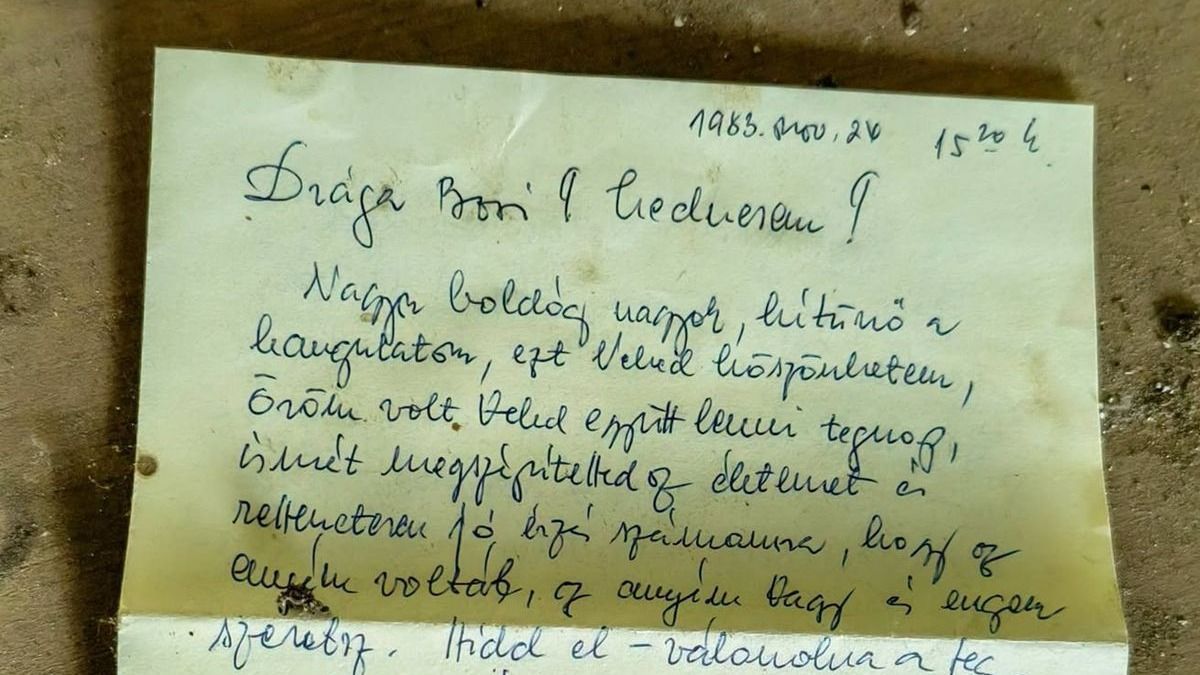 1983. nov. 24 15 20 h.
Drága Bori! Kedvesem!
Nagyon boldog vagyok, kitünő a
hangulatom, ezt Veled köszönhetem,
Öröm volt Veled együtt lenni tegnap,
ismét megszépítetted az életemet és
rettenetesen jó érzés számomra, hogy az
enyém voltál, az enyém vagy és engem
szeretsz. Hidd el - a